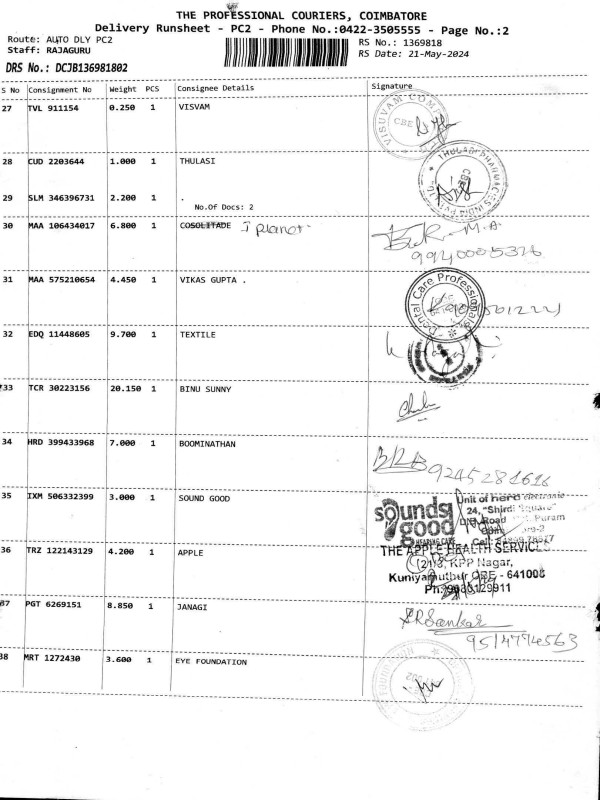 THE PROFESSIONAL COURIERS, COIMBATORE
Delivery Runsheet - PC2 - Phone No.:0422-3505555 - Page No.:2
Route: AUTO DLY PC2
RS No.: 1369818
Staff: RAJAGURU
RS Date: 21-May-2024
DRS No.: DCJB136981802
S No Consignment No Weight PCS Consignee Details Signature
27 TVL 911154 0.250 1 VISVAM
VISUVAM COM
CBE
28 CUD 2203644 1.000 1 THULASI
THULASI PHARMACIES INDIA PVT
CBE
29 SLM 346396731 2.200 1 .
No.Of Docs: 2
30 MAA 106434017 6.800 1 COSOLITADE I planet
M.A
9940005326
31 MAA 575210654 4.450 1 VIKAS GUPTA .
Dental Care Professional
32 EDQ 11448605 9.700 1 TEXTILE
33 TCR 30223156 20.150 1 BINU SUNNY
34 HRD 399433968 7.000 1 BOOMINATHAN
9245281616
35 IXM 506332399 3.000 1 SOUND GOOD
sounds good
HEARING CARE
Unit of hero electronic
24, "Shirdi Square"
Road Puram
Cell:
36 TRZ 122143129 4.200 1 APPLE
THE APPLE HEALTH SERVICES
KPP Nagar,
Kuniyamuthur CBE - 641008
37 PGT 6269151 8.850 1 JANAGI
SRSankar
9514774563
38 MRT 1272430 3.600 1 EYE FOUNDATION
FOUNDATION